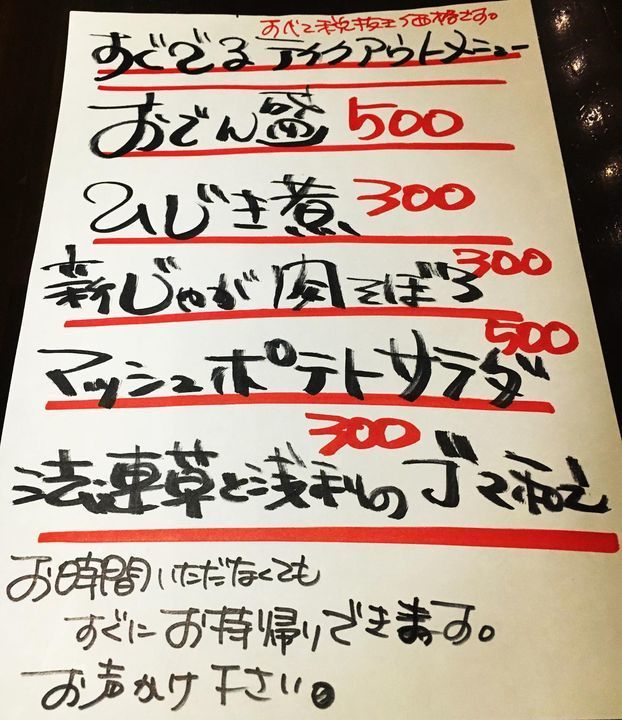 すべて税抜き価格です。
すぐでるテイクアウトメニュー
おでん盛 500
ひじき煮 300
新じゃが肉そぼろ 300
マッシュポテトサラダ 500
法連草と浅利のゴマ和え 300
お時間いただなくても
すぐにお持帰りできます。
お声かけ下さい。